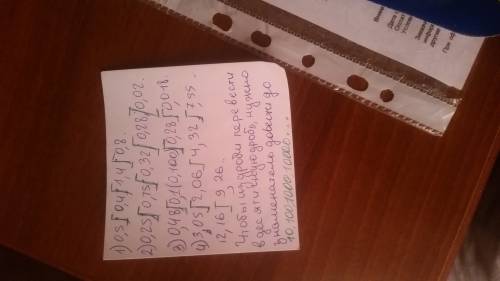 1) 0,5 ⌋ 0,4 ⌋ 1,4 ⌋ 0,8.
2) 0,25 ⌋ 0,75 ⌋ 0,32 ⌋ 0,28 ⌋ 0,02.
3) 0,48 ⌋ 0,1 (0,100) ⌋ 0,28 ⌋ 0,018
4) 3,05 ⌋ 2,06 ⌋ 4,32 ⌋ 7,55.
12,16 ⌋ 9,26.
Чтобы из дроби перевести
в десятичную дробь, нужно
знаменатель довести до
10,100,1000,10000....